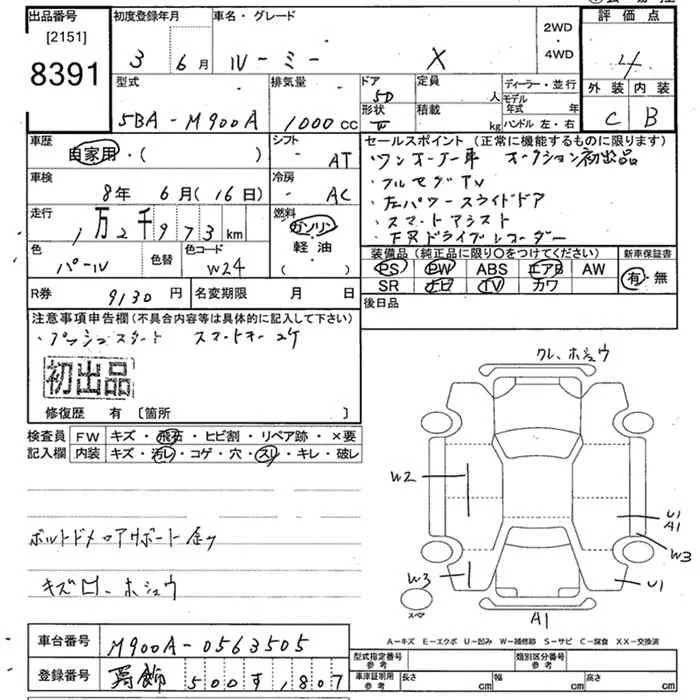 出品番号 初度登録年月 車名・グレード 2WD・4WD 評価点
[2151]
8391
3 年 6月 ルーミー X 4
型式 排気量 ドア 5D 定員 人 ディーラー・並行 外装 内装
5BA-M900A 1000cc 形状 積載 kg モデル年式 年 ハンドル 左・右 C B
車歴 自家用・( ) シフト AT
車検 8年 6月(16日) 冷房 AC
走行 1万2千973km 燃料 ガソリン 軽油 ( )
色 パール 色替 色コード W24
R券 9130円 名変期限 月 日
セールスポイント(正常に機能するものに限ります)
・ワンオーナー車 オークション初出品
・フルセグTV
・左パワースライドドア
・スマートアシスト
・ドライブレコーダー
装備品(純正品に限り○をつけてください) 新車保証書
PS PW ABS エアB AW 有・無
SR ナビ TV カワ
後日品
注意事項申告欄(不具合内容等は具体的に記入して下さい)
・プッシュスタート スマートキー2ケ
初出品
修復歴 有 〔箇所 〕
検査員記入欄 FW キズ・飛石・ヒビ割・リペア跡・×要
内装 キズ・汚レ・コゲ・穴・スレ・キレ・破レ
キズ凹、ホシュウ
クレ、ホシュウ
W2
U1
A1
W3
W3
U1
スペア
A1
A-キズ E-エクボ U-凹み W-補修跡 S-サビ C-腐食 XX-交換済
車台番号 M900A-0563505
登録番号 500す1807
型式指定番号 参考 類別区分番号 参考
車庫証明用 参考 長さ cm 幅 cm 高さ cm